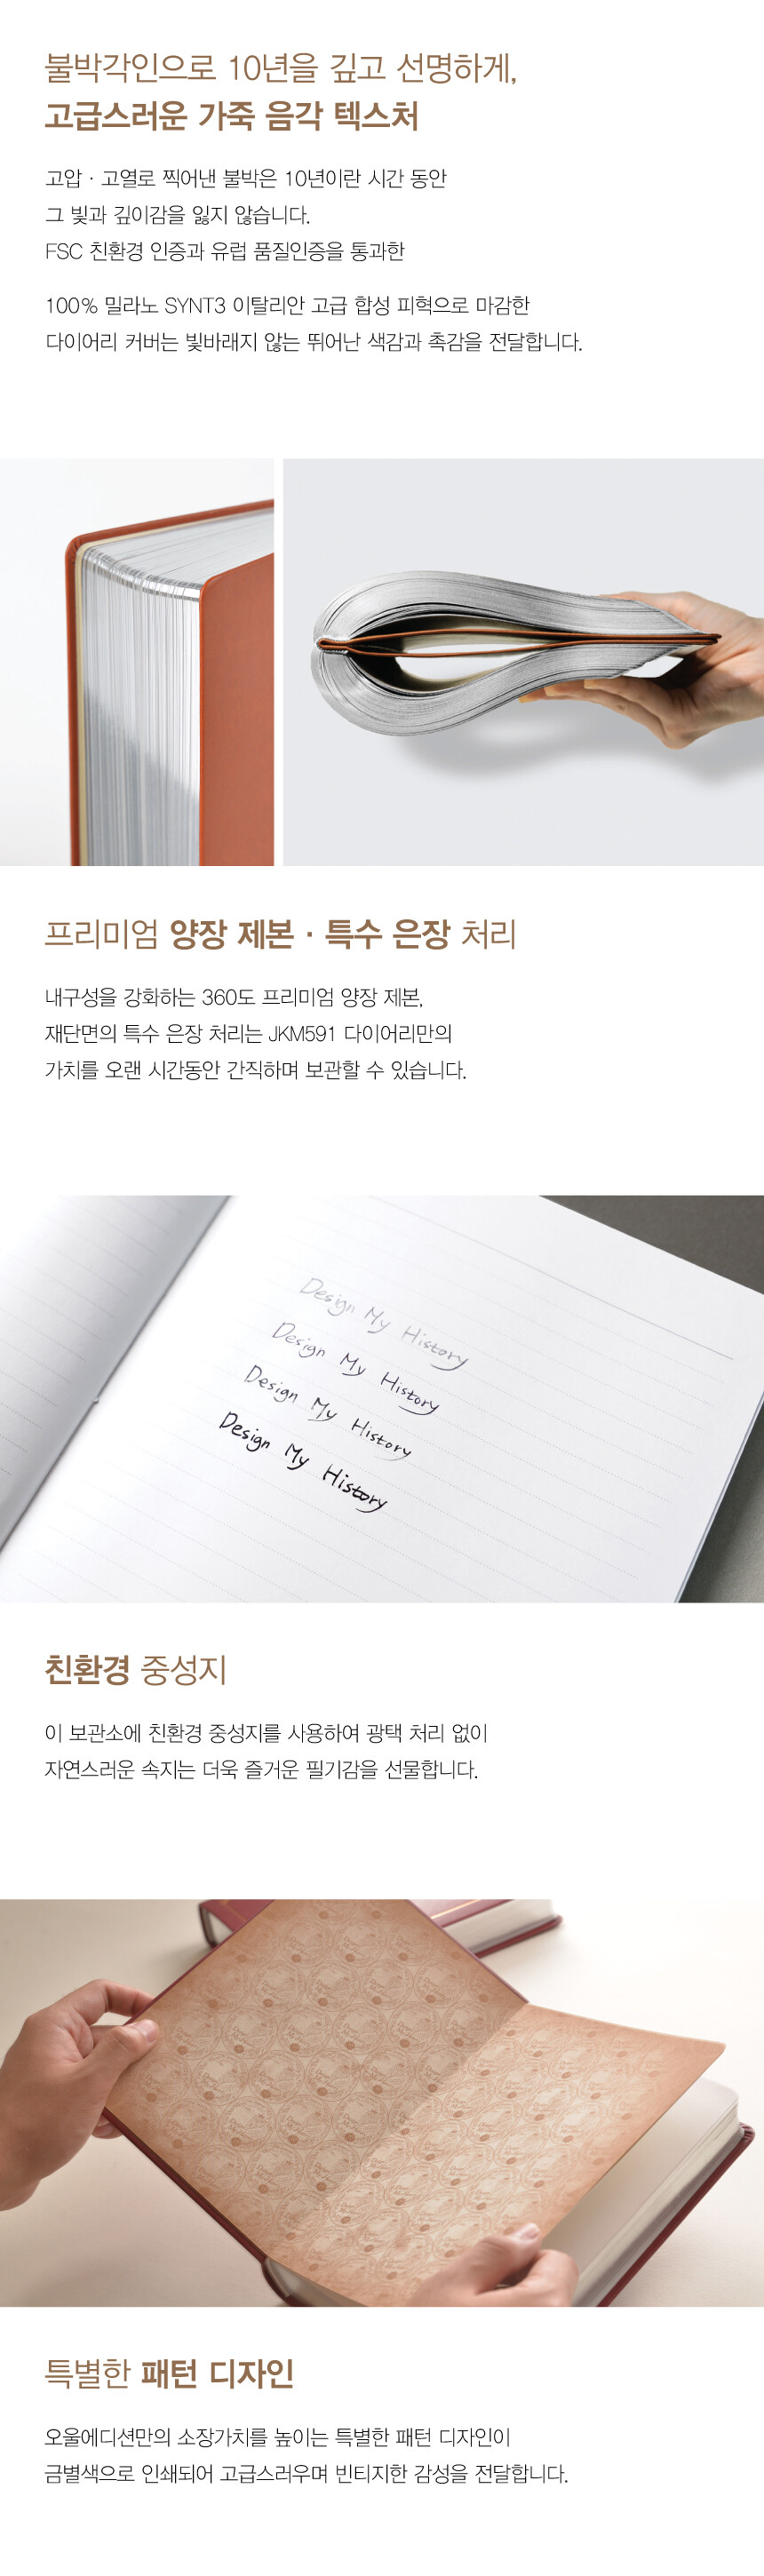 불박각인으로 10년을 깊고 선명하게,
고급스러운 가죽 음각 텍스처
고압 · 고열로 찍어낸 불박은 10년이란 시간 동안
그 빛과 깊이감을 잃지 않습니다.
FSC 친환경 인증과 유럽 품질인증을 통과한
100% 밀라노 SYNT3 이탈리안 고급 합성 피혁으로 마감한
다이어리 커버는 빛바래지 않는 뛰어난 색감과 촉감을 전달합니다.
프리미엄 양장 제본 · 특수 은장 처리
내구성을 강화하는 360도 프리미엄 양장 제본,
재단면의 특수 은장 처리는 JKM591 다이어리만의
가치를 오랜 시간동안 간직하며 보관할 수 있습니다.
Design My History
Design My History
Design My History
Design My History
친환경 중성지
이 보관소에 친환경 중성지를 사용하여 광택 처리 없이
자연스러운 속지는 더욱 즐거운 필기감을 선물합니다.
특별한 패턴 디자인
오울에디션만의 소장가치를 높이는 특별한 패턴 디자인이
금별색으로 인쇄되어 고급스러우며 빈티지한 감성을 전달합니다.